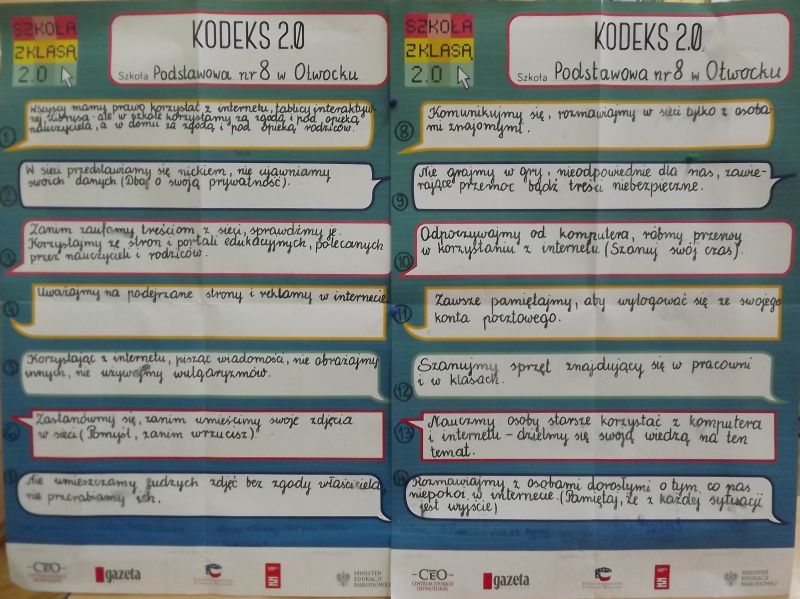 SZKOŁA
Z KLASĄ
2.0
KODEKS 2.0
Szkoła Podstawowa nr 8 w Otwocku
1
Wszyscy mamy prawo korzystać z internetu, tablicy interaktyw-
nej, - ale w szkole korzystamy za zgodą i pod opieką
nauczyciela, a w domu za zgodą i pod opieką rodziców.
2
W sieci przedstawiamy się nickiem, nie ujawniamy
swoich danych (Dbaj o swoją prywatność).
3
Zanim zaufamy treściom z sieci, sprawdźmy je.
Korzystajmy ze stron i portali edukacyjnych, polecanych
przez nauczycieli i rodziców.
4
Uważajmy na podejrzane strony i reklamy w internecie.
5
Korzystając z internetu, pisząc wiadomości, nie obrażajmy
innych, nie używajmy wulgaryzmów.
6
Zastanówmy się, zanim umieścimy swoje zdjęcia
w sieci (Pomyśl, zanim wrzucisz)
7
Nie umieszczamy cudzych zdjęć bez zgody właściciela,
nie przerabiamy ich.
CEO
CENTRUM EDUKACJI
OBYWATELSKIEJ
gazeta
MINISTER
EDUKACJI
NARODOWEJ
SZKOŁA
Z KLASĄ
2.0
KODEKS 2.0
Szkoła Podstawowa nr 8 w Otwocku
8
Komunikujmy się, rozmawiajmy w sieci tylko z osoba-
mi znajomymi.
9
Nie grajmy w gry, nieodpowiednie dla nas, zawie-
rające przemoc bądź treści niebezpieczne.
10
Odpoczywajmy od komputera, róbmy przerwy
w korzystaniu z internetu (Szanuj swój czas).
11
Zawsze pamiętajmy, aby wylogować się ze swojego
konta pocztowego.
12
Szanujmy sprzęt znajdujący się w pracowni
i w klasach.
13
Nauczmy osoby starsze korzystać z komputera
i internetu - dzielmy się swoją wiedzą na ten
temat.
14
Rozmawiajmy z osobami dorosłymi o tym co nas
niepokoi w internecie. (Pamiętaj, że z każdej sytuacji
jest wyjście)
CEO
CENTRUM EDUKACJI
OBYWATELSKIEJ
gazeta
MINISTER
EDUKACJI
NARODOWEJ